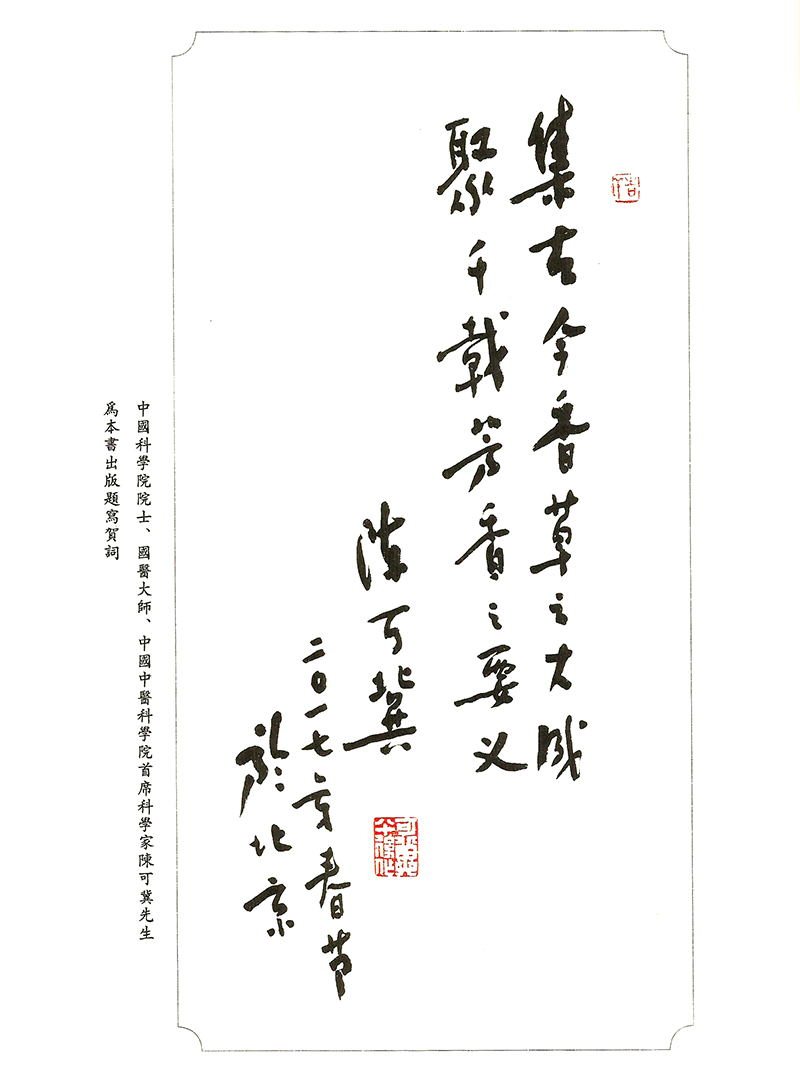 集古今香草之大成
聚千载芳香之要义
陈可冀
二〇一七年春节
於北京
中國科學院院士、國醫大師、中國中醫科學院首席科學家陳可冀先生
爲本書出版題寫賀詞